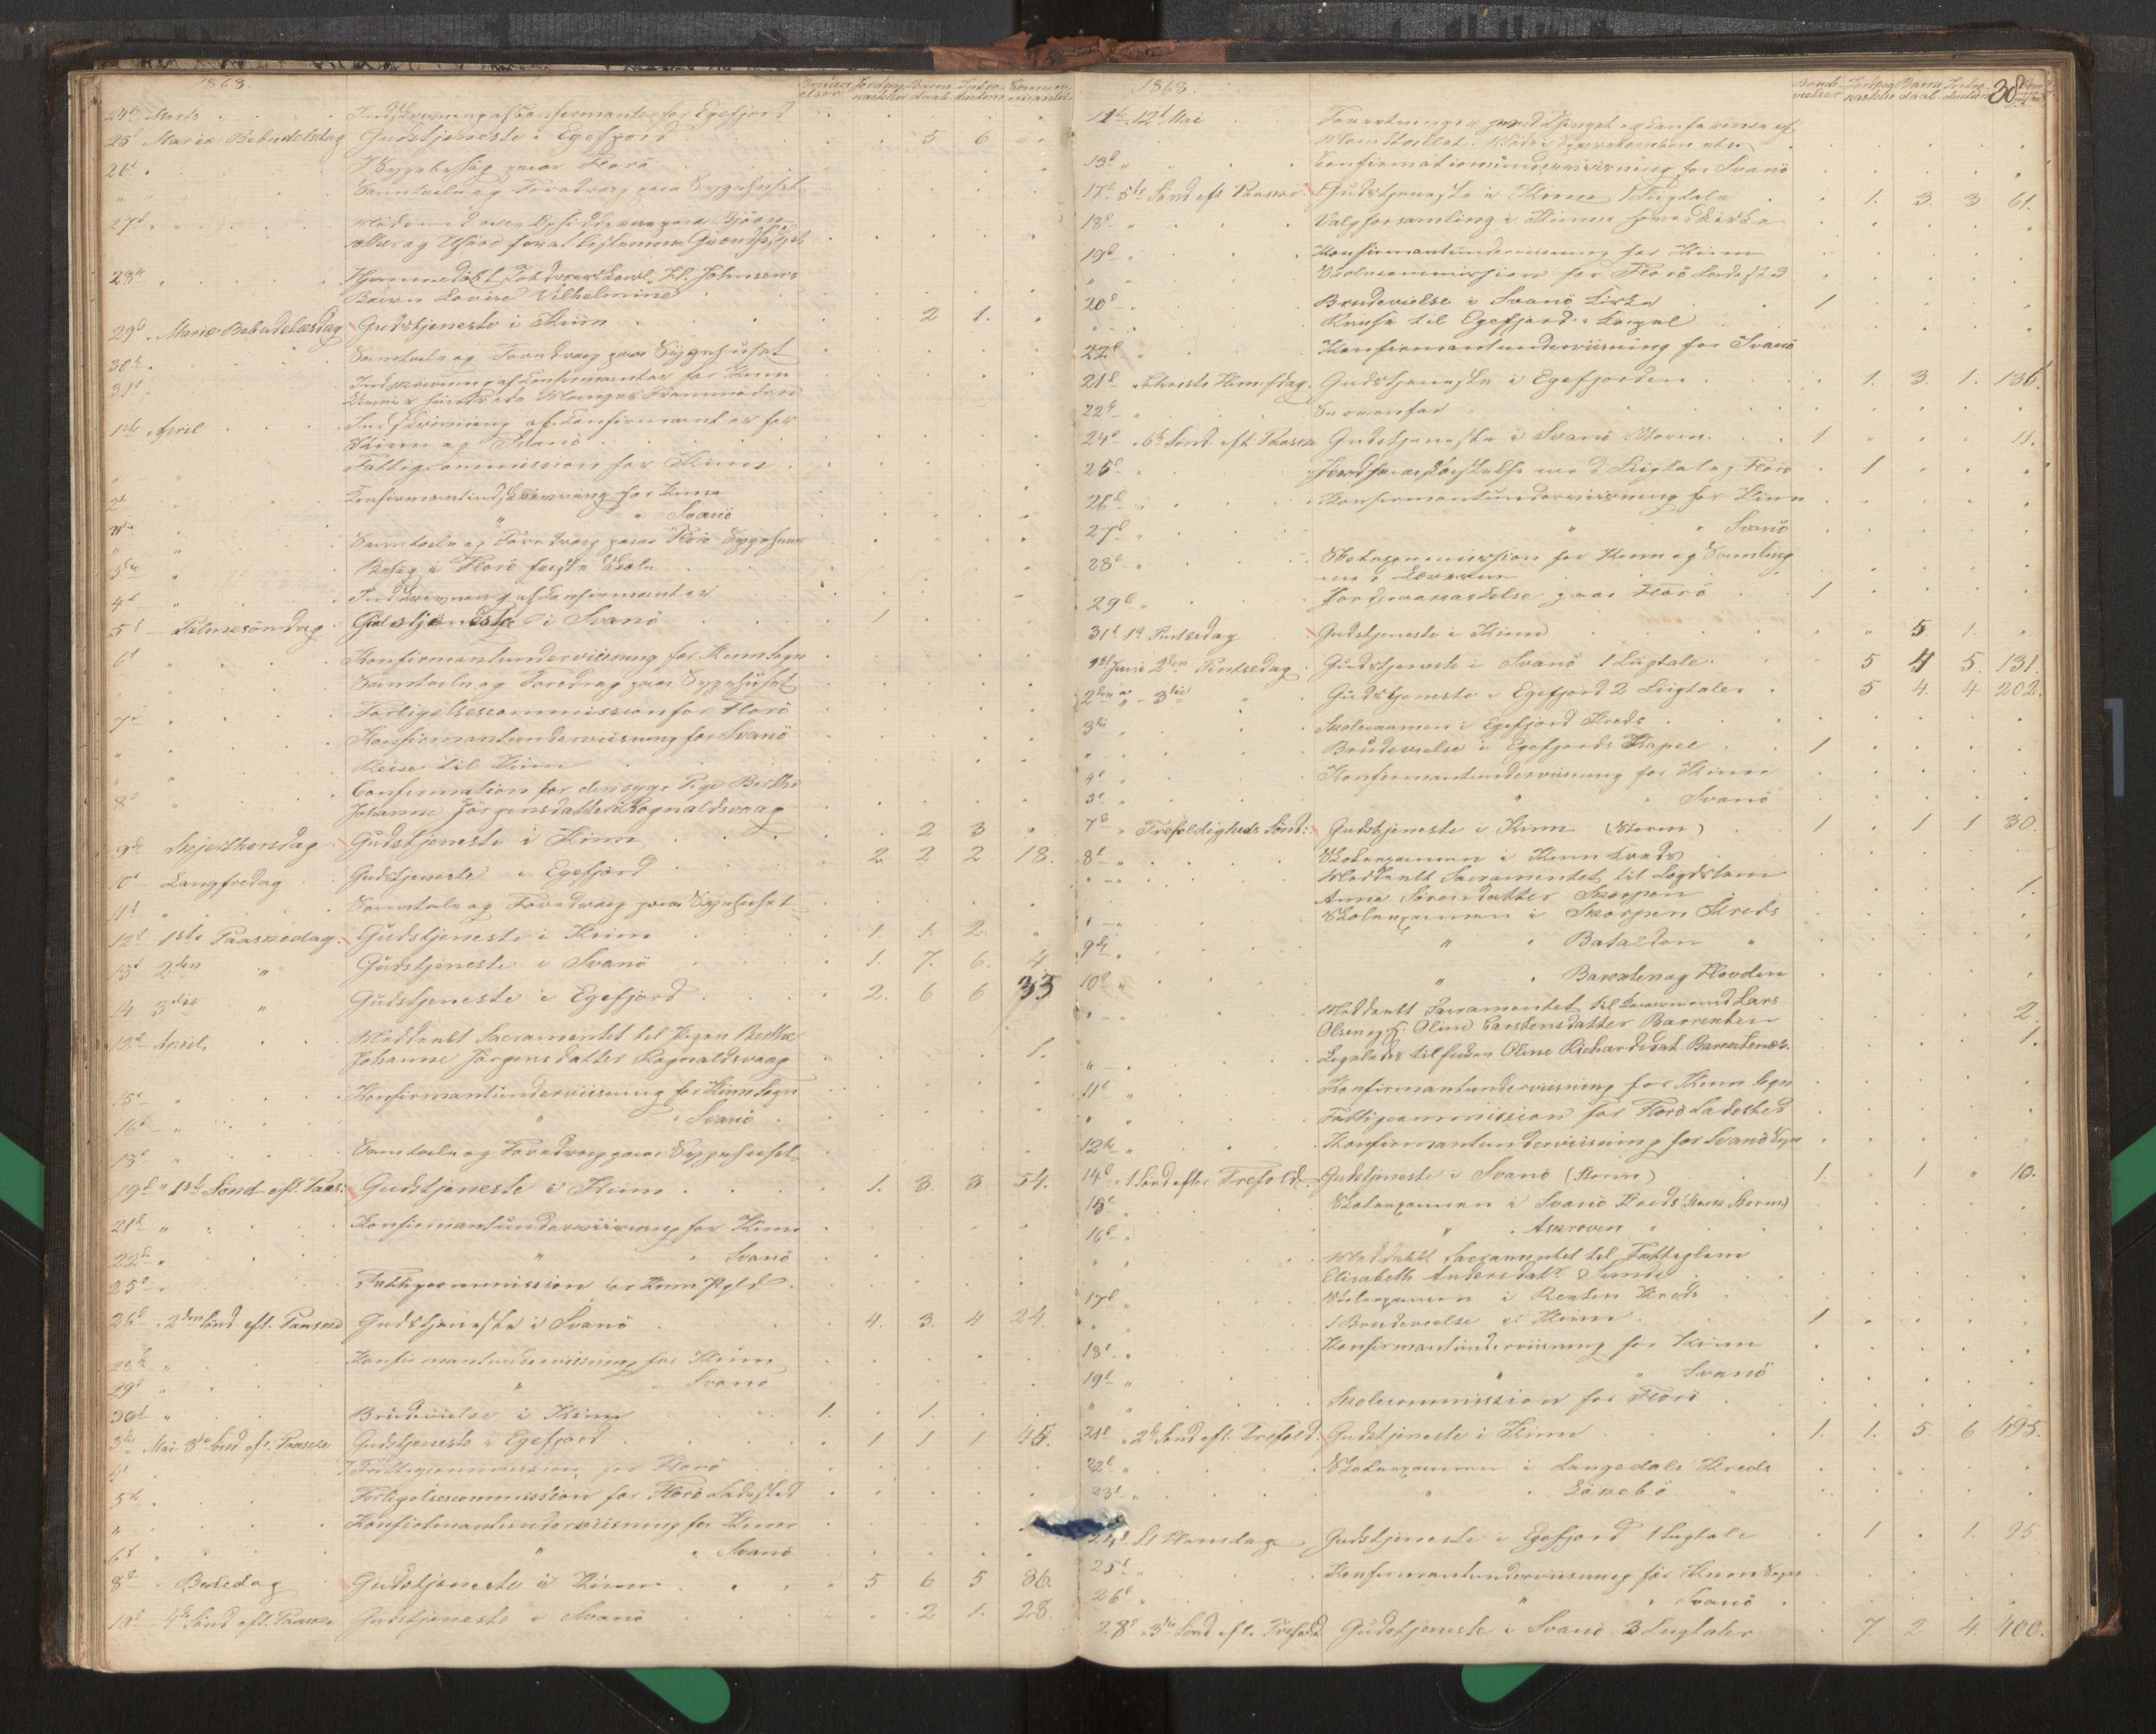 1868.
24de Marts Indskrivning af Confirmanter for Egefjord
25d Mariæ Bebudelsdag Gudstjeneste i Egefjord 5 6
26d Sygebesög paa Florö
Samtale og Foredrag paa Sygehuset
27d
28de
Barn Lovise Vilhelmine
29d Mariæ Bebudelsesdag Gudstjeneste i Kinn 2 1.
30te Samtale og Foredrag paa Sygehuset
31d Indskrivning af Confirmanter for Kinn
1ste April Indskrivning af Confirmanter for
Kinn og Svanö
Fattigcommission for Kinn
2d Confirmantindskrivning for Kinn
" " Svanö
Samtale og Foredrag paa Florö Sygehuus
3die Besög i Florö faste Skole
4d Indskrivning af Confirmanter
5t Palmesöndag Gudstjeneste i Svanö 1
6t Konfirmantunderviisning for Kinn Sogn
Samtale og Foredrag paa Sygehuset
7d Forligelsescommission for Florö
Konfirmantunderviisning for Svanö
Reise til Kinn
8d Confirmation for den syge Pige Berthe
Johanne Jörgensdatter Rognaldsvaag
9de Skjærthorsdag Gudstjeneste i Kinn 2 3
10d Langfredag Gudstjeneste i Egefjord 2 2 2 18.
11t Samtale og Foredrag paa Sygehuset
12t 1ste Paaskedag Gudstjeneste i Kinn 1. 1. 2.
13d 2den " Gudstjeneste i Svanö 1. 7. 6. 4
14 3die " Gudstjeneste i Egefjord 2. 6 6 33
12d April Meddeelt Sacramentet til Pigen Berthe
Johanne Jörgensdatter Rognaldsvaag 1.
15d Konfirmantunderviisning for Kinn Sogn
16d " " Svanö
18d Samtale og Foredrag paa Sygehuset
19d 1ste Sönd. eft. Paas. Gudstjeneste i Kinn 1. 3. 3. 54.
21d Konfirmantunderviisning for Kinn
22d " " Svanö
25d Fattigcommission for Kinn Pgld
26d 2den Sönd. eft. Paaske Gudstjeneste i Svanö 4. 3. 4 24.
Konfirmantunderviisning for Kinn
29d " " Svanö
30d Brudevielse i Kinn 1. 1.
3die Mai 3die Sönd eft. Paaske Gudstjeneste i Egefjord 1 1 1 45.
4d Fattigcommission for Florö
5d Forligelsescommission for Florö Ladested
Konfirmantunderviisning for Kinn
6d " " Svanö
8d Bededag Gudstjeneste i Kinn 5 6 5 86.
10d 4de Sönd eft. Paaske Gudstjeneste i Svanö 2 1. 28.
1868. 38
11te 12d Mai
13d Confirmationsunderviisning for Svanö
17d 5te Sönd eft Paaske Gudstjeneste i Kinn 1 Liigtale 1. 3. 3 61.
18d Valgforsamling i Kinns hovedkirke
19d Konfirmantunderviisning for Kinn
Skolecommission for Florö Ladested
20d Brudevielse i Svanö Kirke 1
Reise til Egefjord Kapel
22d Konfirmantunderviisning for Svanö
21d Christi Himmelfdag. Gudstjeneste i Egefjorden 1. 3. 1. 136.
22de
24d 6te Sönd. eft. Paaske Gudstjeneste i Svanö Storm. 1 11.
25d Jordpaakastelse med Liigtale Florö 1
26d Konfirmantunderviisning for Kinn
27d " " Svanö
28d Skolecommission for Kinn og Samling
29d Jordpaakastelse paa Florö 1
31d 1ste Pintsedag Gudstjeneste i Kinn 5 1.
1ste Juni 2den Pintsedag Gudstjeneste i Svanö 1 Liigtale. 5 4 5. 131.
2den " 3die " Gudstjeneste i Egefjord 2 Liigtaler 5 4. 4 202.
3die Skoleexamen i Egefjord Kreds
Brudevielse i Egefjords Kapel 1
4d Konfirmantunderviisning for Kinn
5d " " Svanö
7d Trefoldigheds Sönd: Gudstjeneste i Kinn (Storm) 1 1 1 30.
8d Skoleexamen i Kinn Kreds
Meddeelt Sacramentet til Lægdslem
Anne Sörensdatter Skorpen 1.
Skoleexamen i Skorpen Kreds
9de " " Batalden "
10d " " Barexten og Hovden
Meddeelt Sacramentet til Lars
Olsen og H. Oline Carstensdatter Barrexten 2
Oline Richardsdat. Barexten 1.
11d Konfirmantunderviisning for Kinn Sogn
Fattigcommission for Florö Ladested
12te Konfirmantunderviisning for Svanö Sogn
14d 1 Sönd efter Trefold. Gudstjeneste i Svanö (Storm) 1. 1 " 10.
15d Skoleexamen i Svanö Kreds
16d " Askroven "
Meddeelt Sacramentet til Fattiglem
Elisabeth Andersdatr Sunde
17d Skoleexamen i Rexten Kreds
1 Brudevielse i Kinn 1
18d Konfirmantunderviisning for Kinn
19d " " Svanö
Skolecommission for Florö
21d 2d Sönd eft. Trefold. Gudstjeneste i Kinn 1. 1. 5. 6 495.
22d Skoleexamen i Langedals Kreds
23d " "
24d St Hansdag Gudstjeneste i Egefjord 1 Liigtale 1 1. 95.
25d Konfirmantunderviisning for Kinn Sogn
26d " " Svanö
28d 3die Sönd eft. Trefold. Gudstjeneste i Svanö. 3 Liigtaler 7. 2 4. 400.